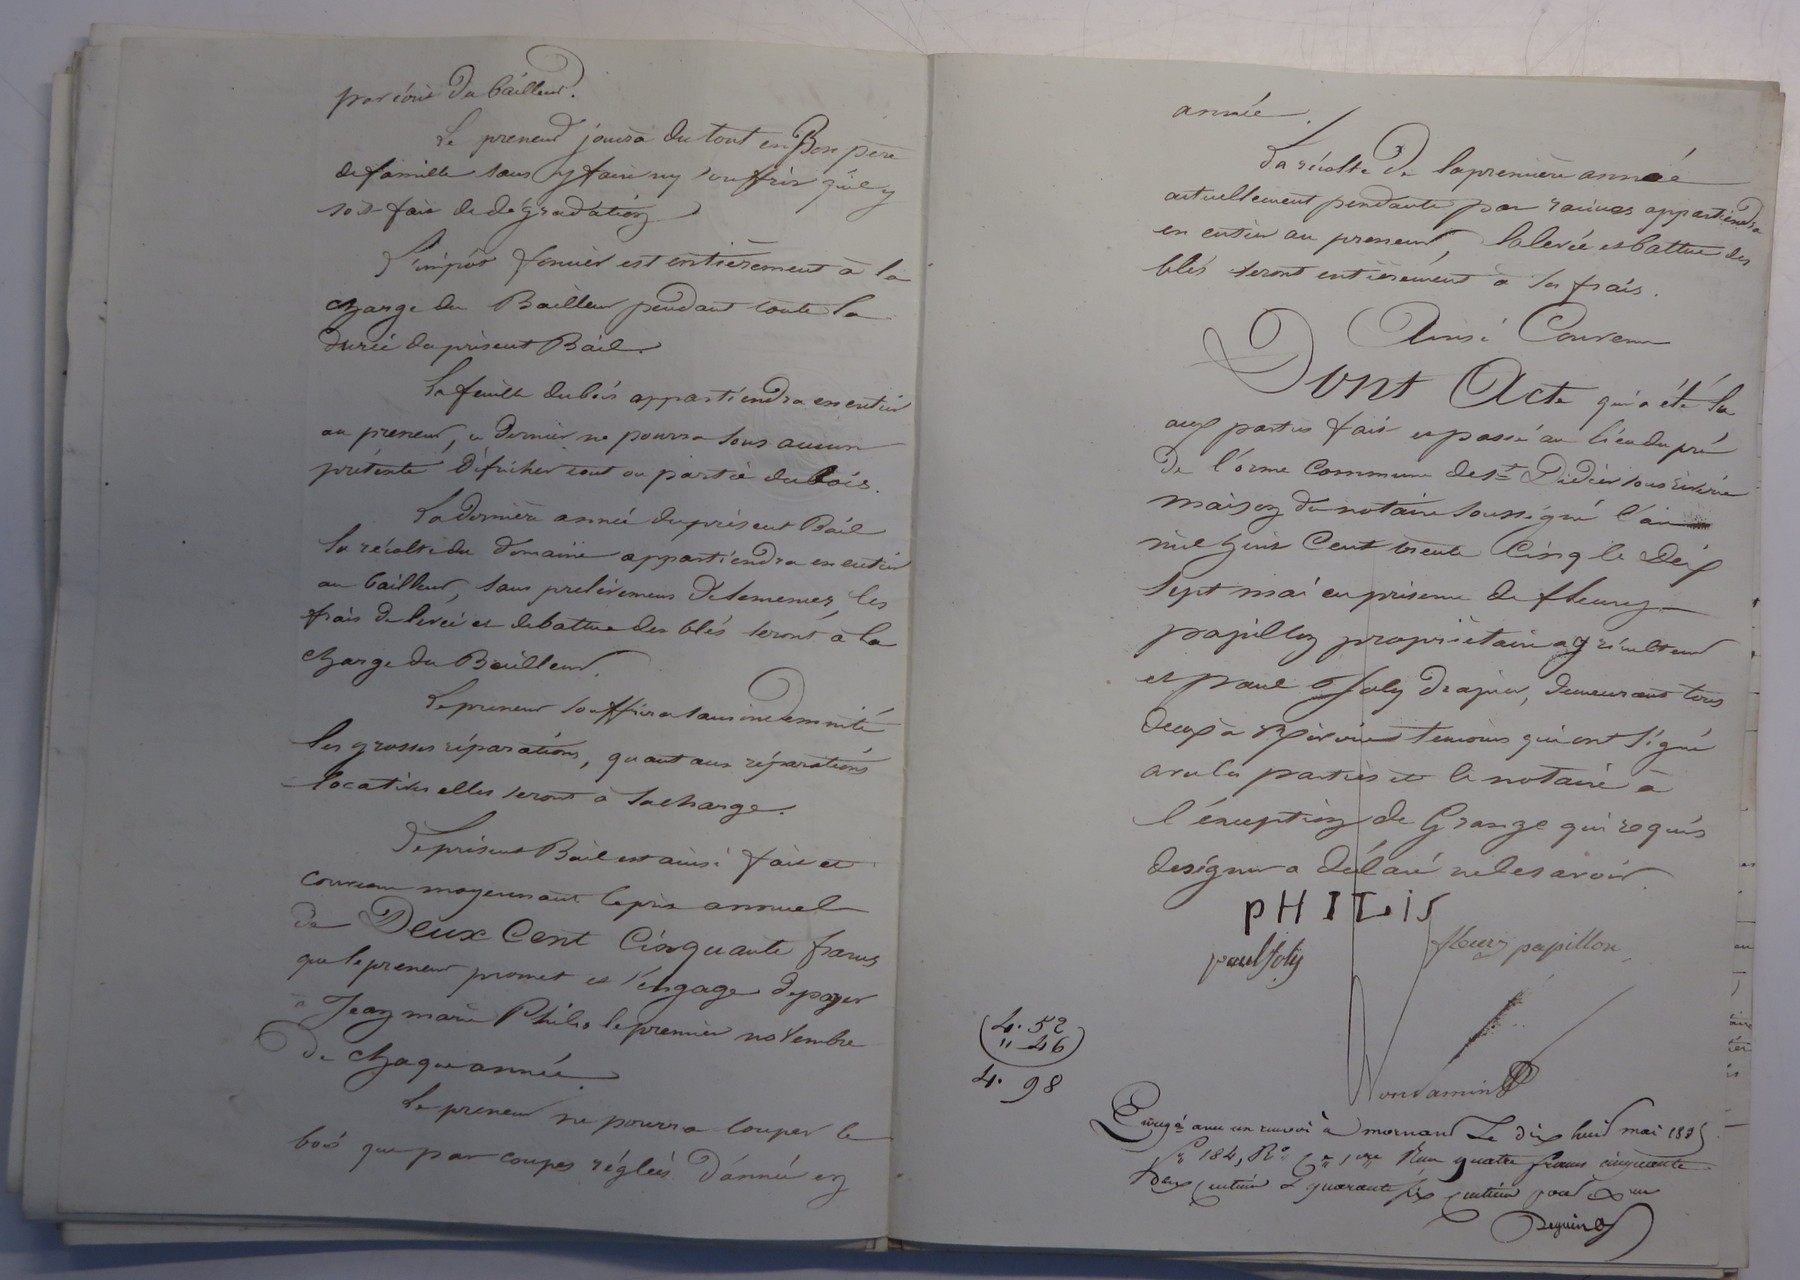 par écrit du bailleur.
Le preneur jouira du tout en Bon père
de famille sans y faire ny souffrir qu'il y
soit fait de dégradation
L'impôt foncier est entièrement à la
charge du Bailleur pendant toute la
durée du présent Bail.
La feuille du bois appartiendra en entier
au preneur, ce dernier ne pourra sous aucun
prétexte défricher tout ou partie du bois.
La dernière année du présent Bail
la récolte du domaine appartiendra en entier
au bailleur, sans prelèvement de semences, les
frais de levée et de battue des blés seront à la
charge du Bailleur.
Le preneur souffrira sans indemnité
les grosses réparations, quant aux réparations
locatives elles seront à sa charge.
Le présent Bail est ainsi fait et
convenu moyennant le prix annuel
de Deux Cent Cinquante francs
que le preneur promet et s'engage de payer
à Jean marie Philis le premier novembre
de chaque année.
Le preneur ne pourra couper le
bois que par coupes réglées d'année en
année.
La récolte de la première année
actuellement pendante par racines appartiendra
en entier au preneur, la levée et battue des
blés seront entièrement à ses frais.
Ainsi Convenu
Dont Acte qui a été lu
aux parties fait et passé au lieu du pré
de l'orme commune de St Didier sous riverie
maison du notaire soussigné l'an
mil huit Cent trente Cinq le Dix
sept mai en présence de fleury
papillon propriétaire agriculteur
et paul Joly drapier, demeurant tous
deux à Riverie témoins qui ont signé
avec les parties et le notaire à
l'éxception de Grange qui requis
de signer a déclaré ne le savoir.
pHILiS
paul Joly fleury papillon
4. 52
" 46
4. 98
Condamin
Enregé avec un renvoi à mornant Le dix huit mai 1835
fo 184, Ro Reçu quatre francs cinquante
deux centimes et quarante six centimes pour